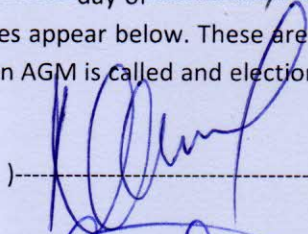 day of
es appear below. These are
n AGM is called and election
)